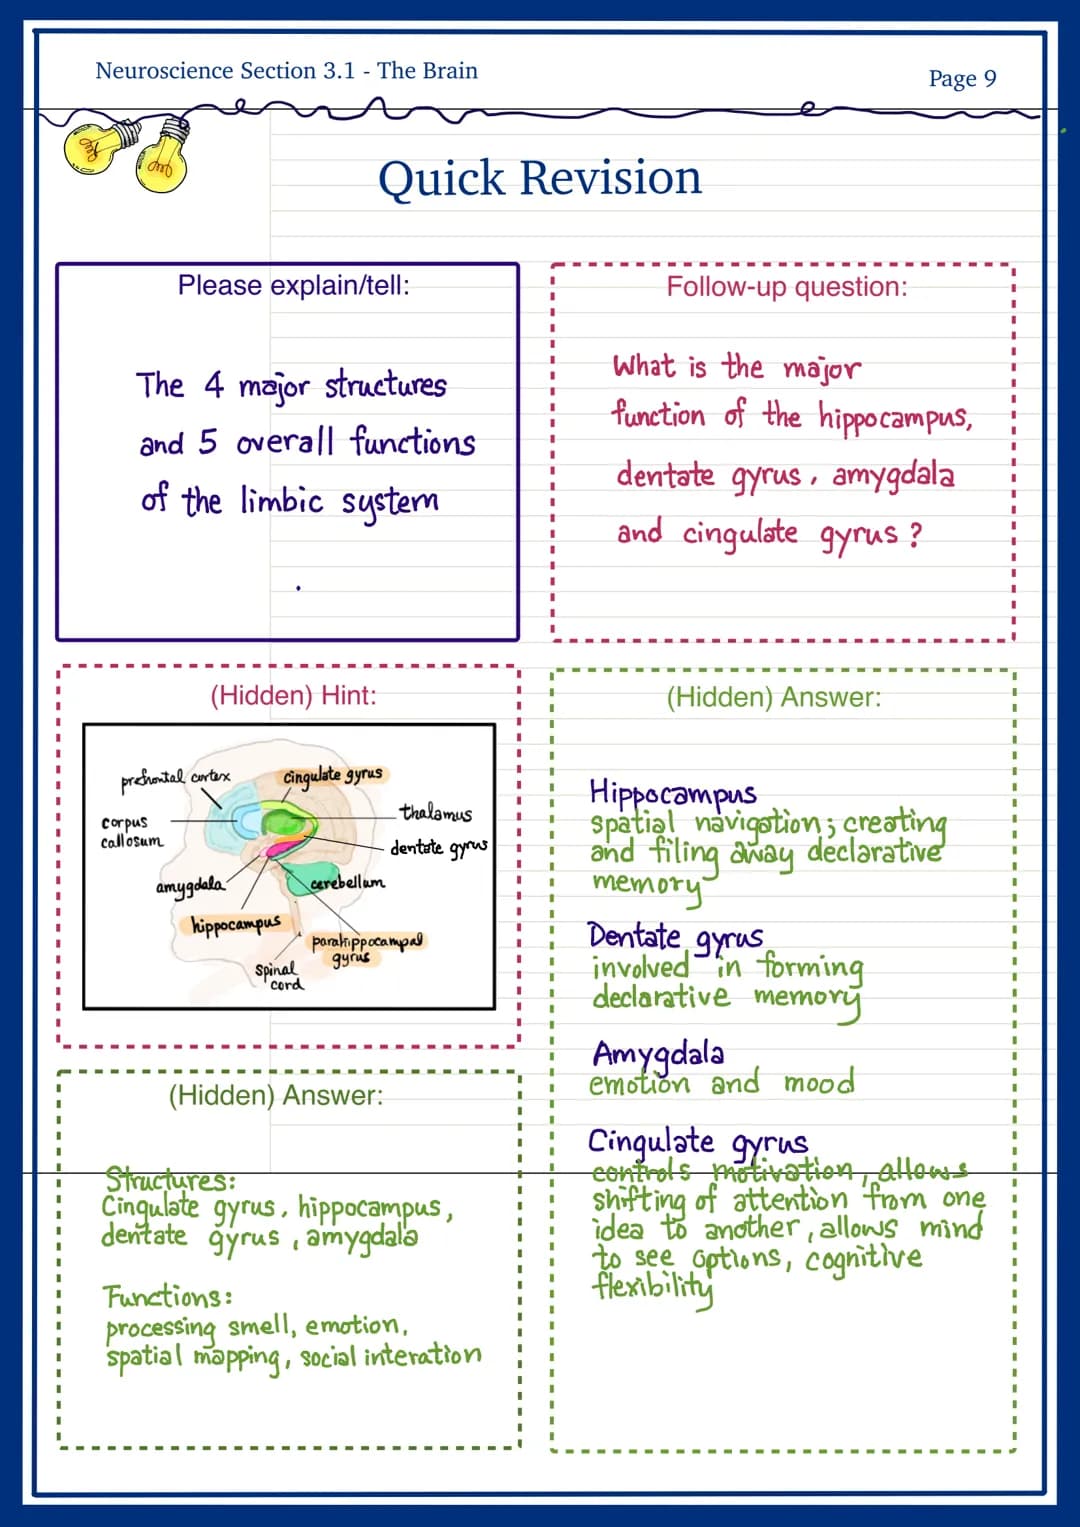 Neuroscience Section 3.1 - The Brain
Page 9
Quick Revision
Please explain/tell:
The 4 major structures
and 5 overall functions
of the limbic system
Follow-up question:
What is the major
function of the hippocampus,
dentate gyrus, amygdala
and cingulate gyrus?
(Hidden) Hint:
prefrontal cortex
cingulate gyrus
corpus
callosum
thalamus
dentate gyrus
amygdala
cerebellum
hippocampus
parahippocampal
gyrus
spinal
cord
(Hidden) Answer:
Structures:
Cingulate gyrus, hippocampus,
dentate gyrus, amygdala
Functions:
processing smell, emotion,
spatial mapping, social interation
(Hidden) Answer:
Hippocampus
spatial navigation; creating
and filing away declarative
memory
Dentate gyrus
involved in forming
declarative memory
Amygdala
emotion and mood
Cingulate gyrus
controls motivation, allows
shifting of attention from one
idea to another, allows mind
to see options, cognitive
flexibility